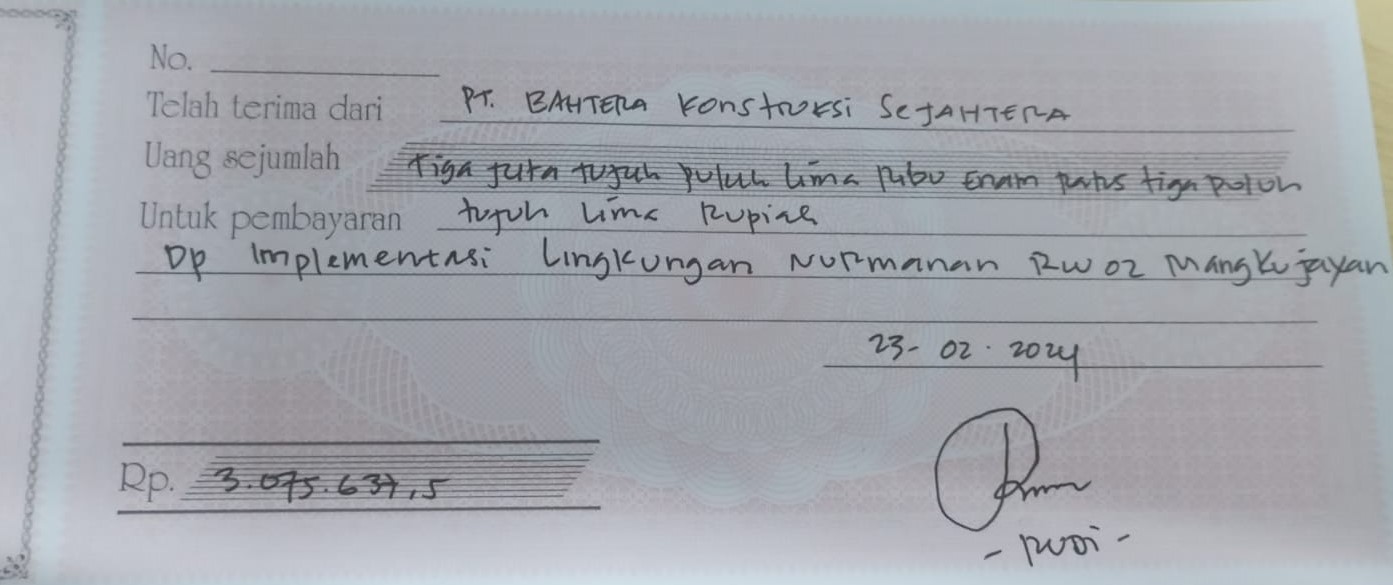 No.
Telah terima dari PT. BAHTERA Konstruksi SeJAHTERA
Uang sejumlah tiga juta tujuh puluh lima ribu Enam ratus tiga puluh
Untuk pembayaran tujuh lima Rupiah
Dp Implementasi Lingkungan Nurmanan RW 02 Mangkujayan
23- 02 . 2024
Rp. 3.075.637,5
- Rudi -